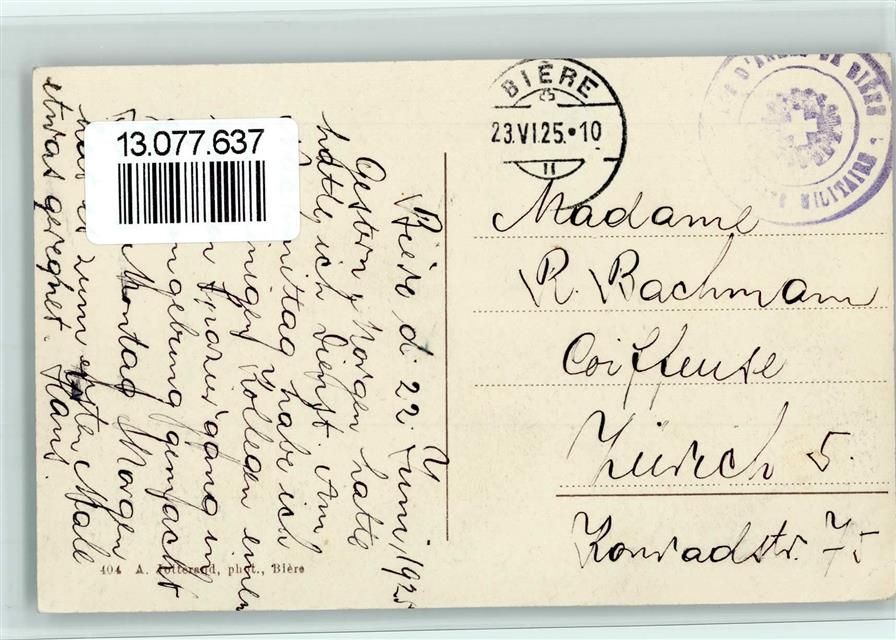 13.077.637
BIÈRE
23.VI.25.•10
D'ARMES DE BIÈRE
Madame
R. Bachmann
Coiffeuse
Zürich 5.
Konradstr. 75
Bière d. 22. Juni 1925
Gestern Morgen hatte
hatte, ich Dienst. Am
mittag habe ich
einigen Kollegen einen
Spaziergang in
Umgebung gemacht
Montag Morgen
hat es zum ersten Male
etwas geregnet. Hans.
404 A. Potterand, phot., Bière